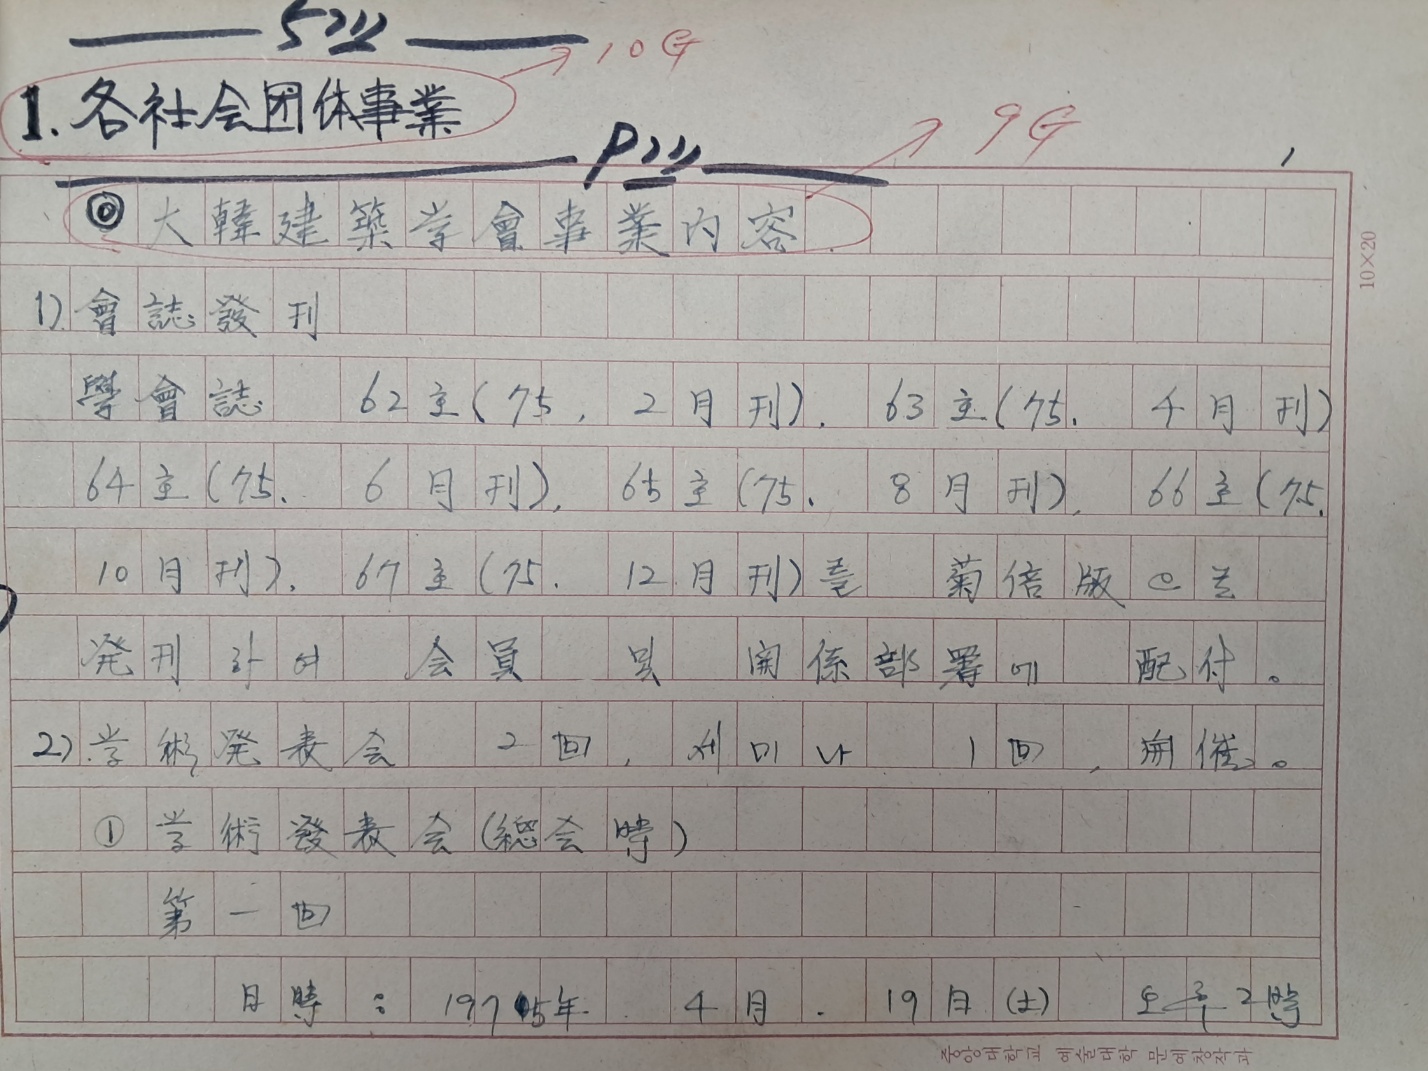 10G
1. 各社会団体事業
9G
◎ 大韓建築学會事業内容
10×20
1) 會誌發刊
學會誌 62호(75. 2月刊). 63호(75. 4月刊)
64호(75. 6月刊). 65호(75. 8月刊). 66호(75.
10月刊). 67호(75. 12月刊)를 菊倍版으로
発刊하여 会員 및 関係部署에 配付。
2) 学術発表会 2回, 세미나 1回, 開催。
① 学術發表会(總会時)
第一回
日時 : 1975年 4月. 19日(土) 오후 2時
중앙대학교 예술대학 문예창작과